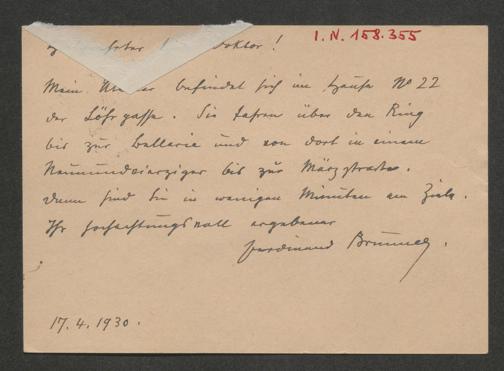 I.N. 158.355
Doktor!
Mein befindet sich im Hause No 22
der Löhrgasse. Sie fahren über den Ring
bis zur Bellaria und von dort in einem
Neunundvierziger bis zur Märzstraße.
Dann sind Sie in wenigen Minuten am Ziele.
Ihr hochachtungsvoll ergebener
Ferdinand
17.4.1930.